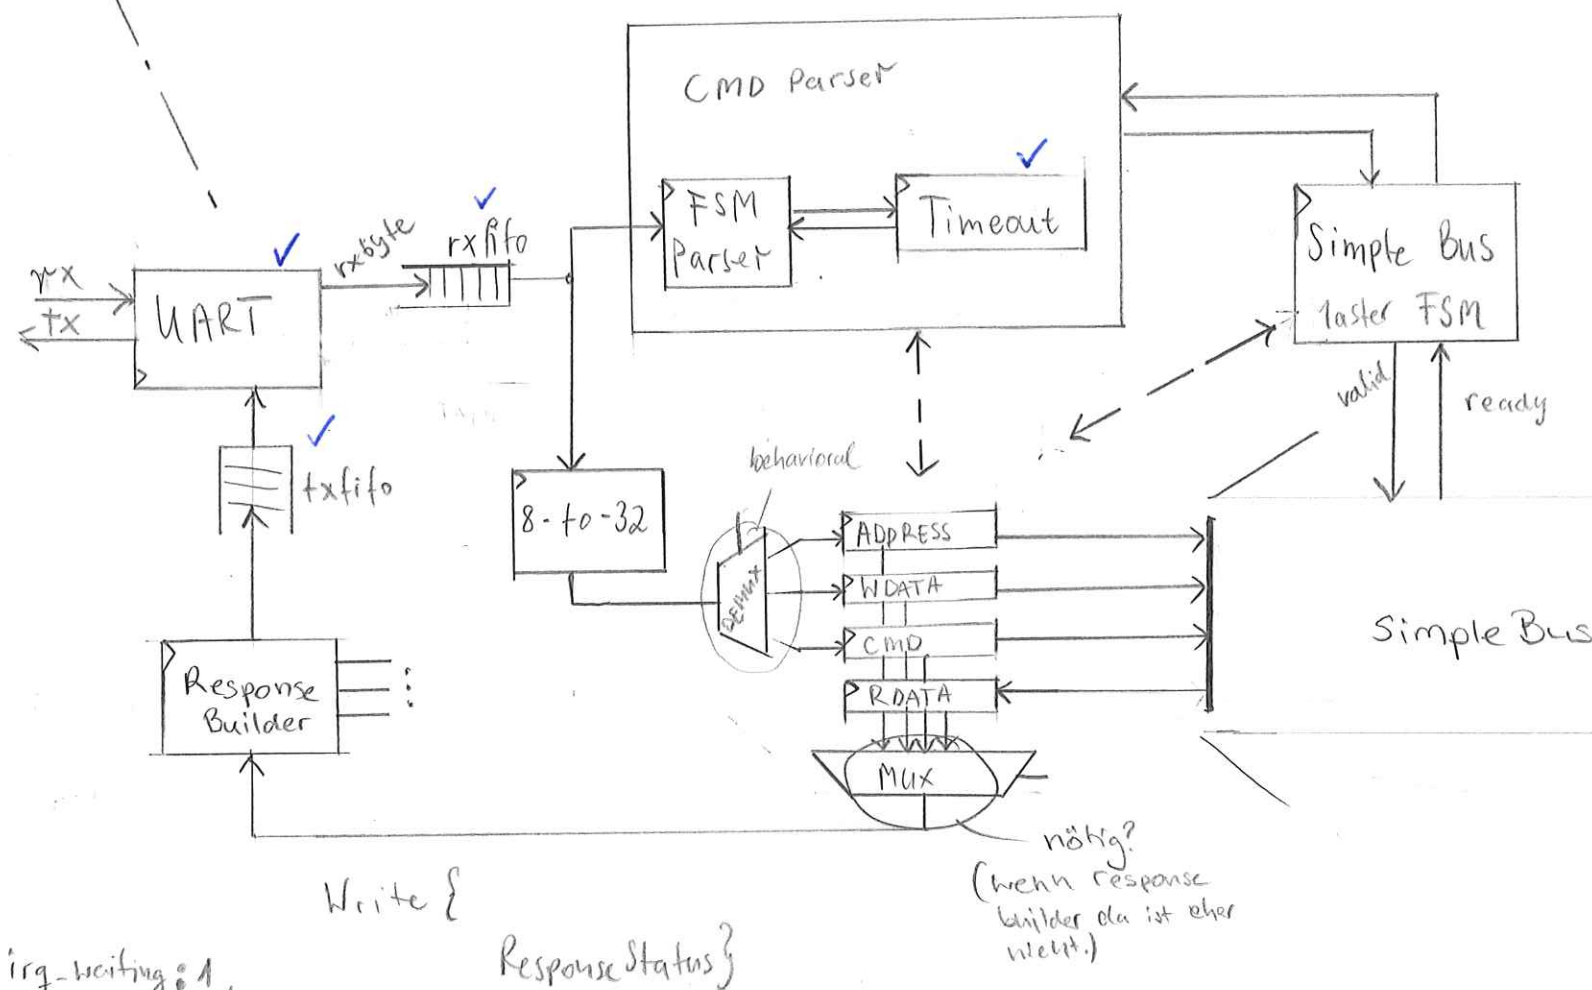 CMD Parser
FSM
Parser
Timeout
Simple Bus
Master FSM
rx
tx
UART
rxbyte
rxfifo
txfifo
valid
ready
8-to-32
behavioral
DEMUX
ADDRESS
WDATA
CMD
RDATA
MUX
Simple Bus
Response
Builder
nötig?
(wenn response
builder da ist eher
nicht.)
Write {
Response Status}
irq_waiting:1,